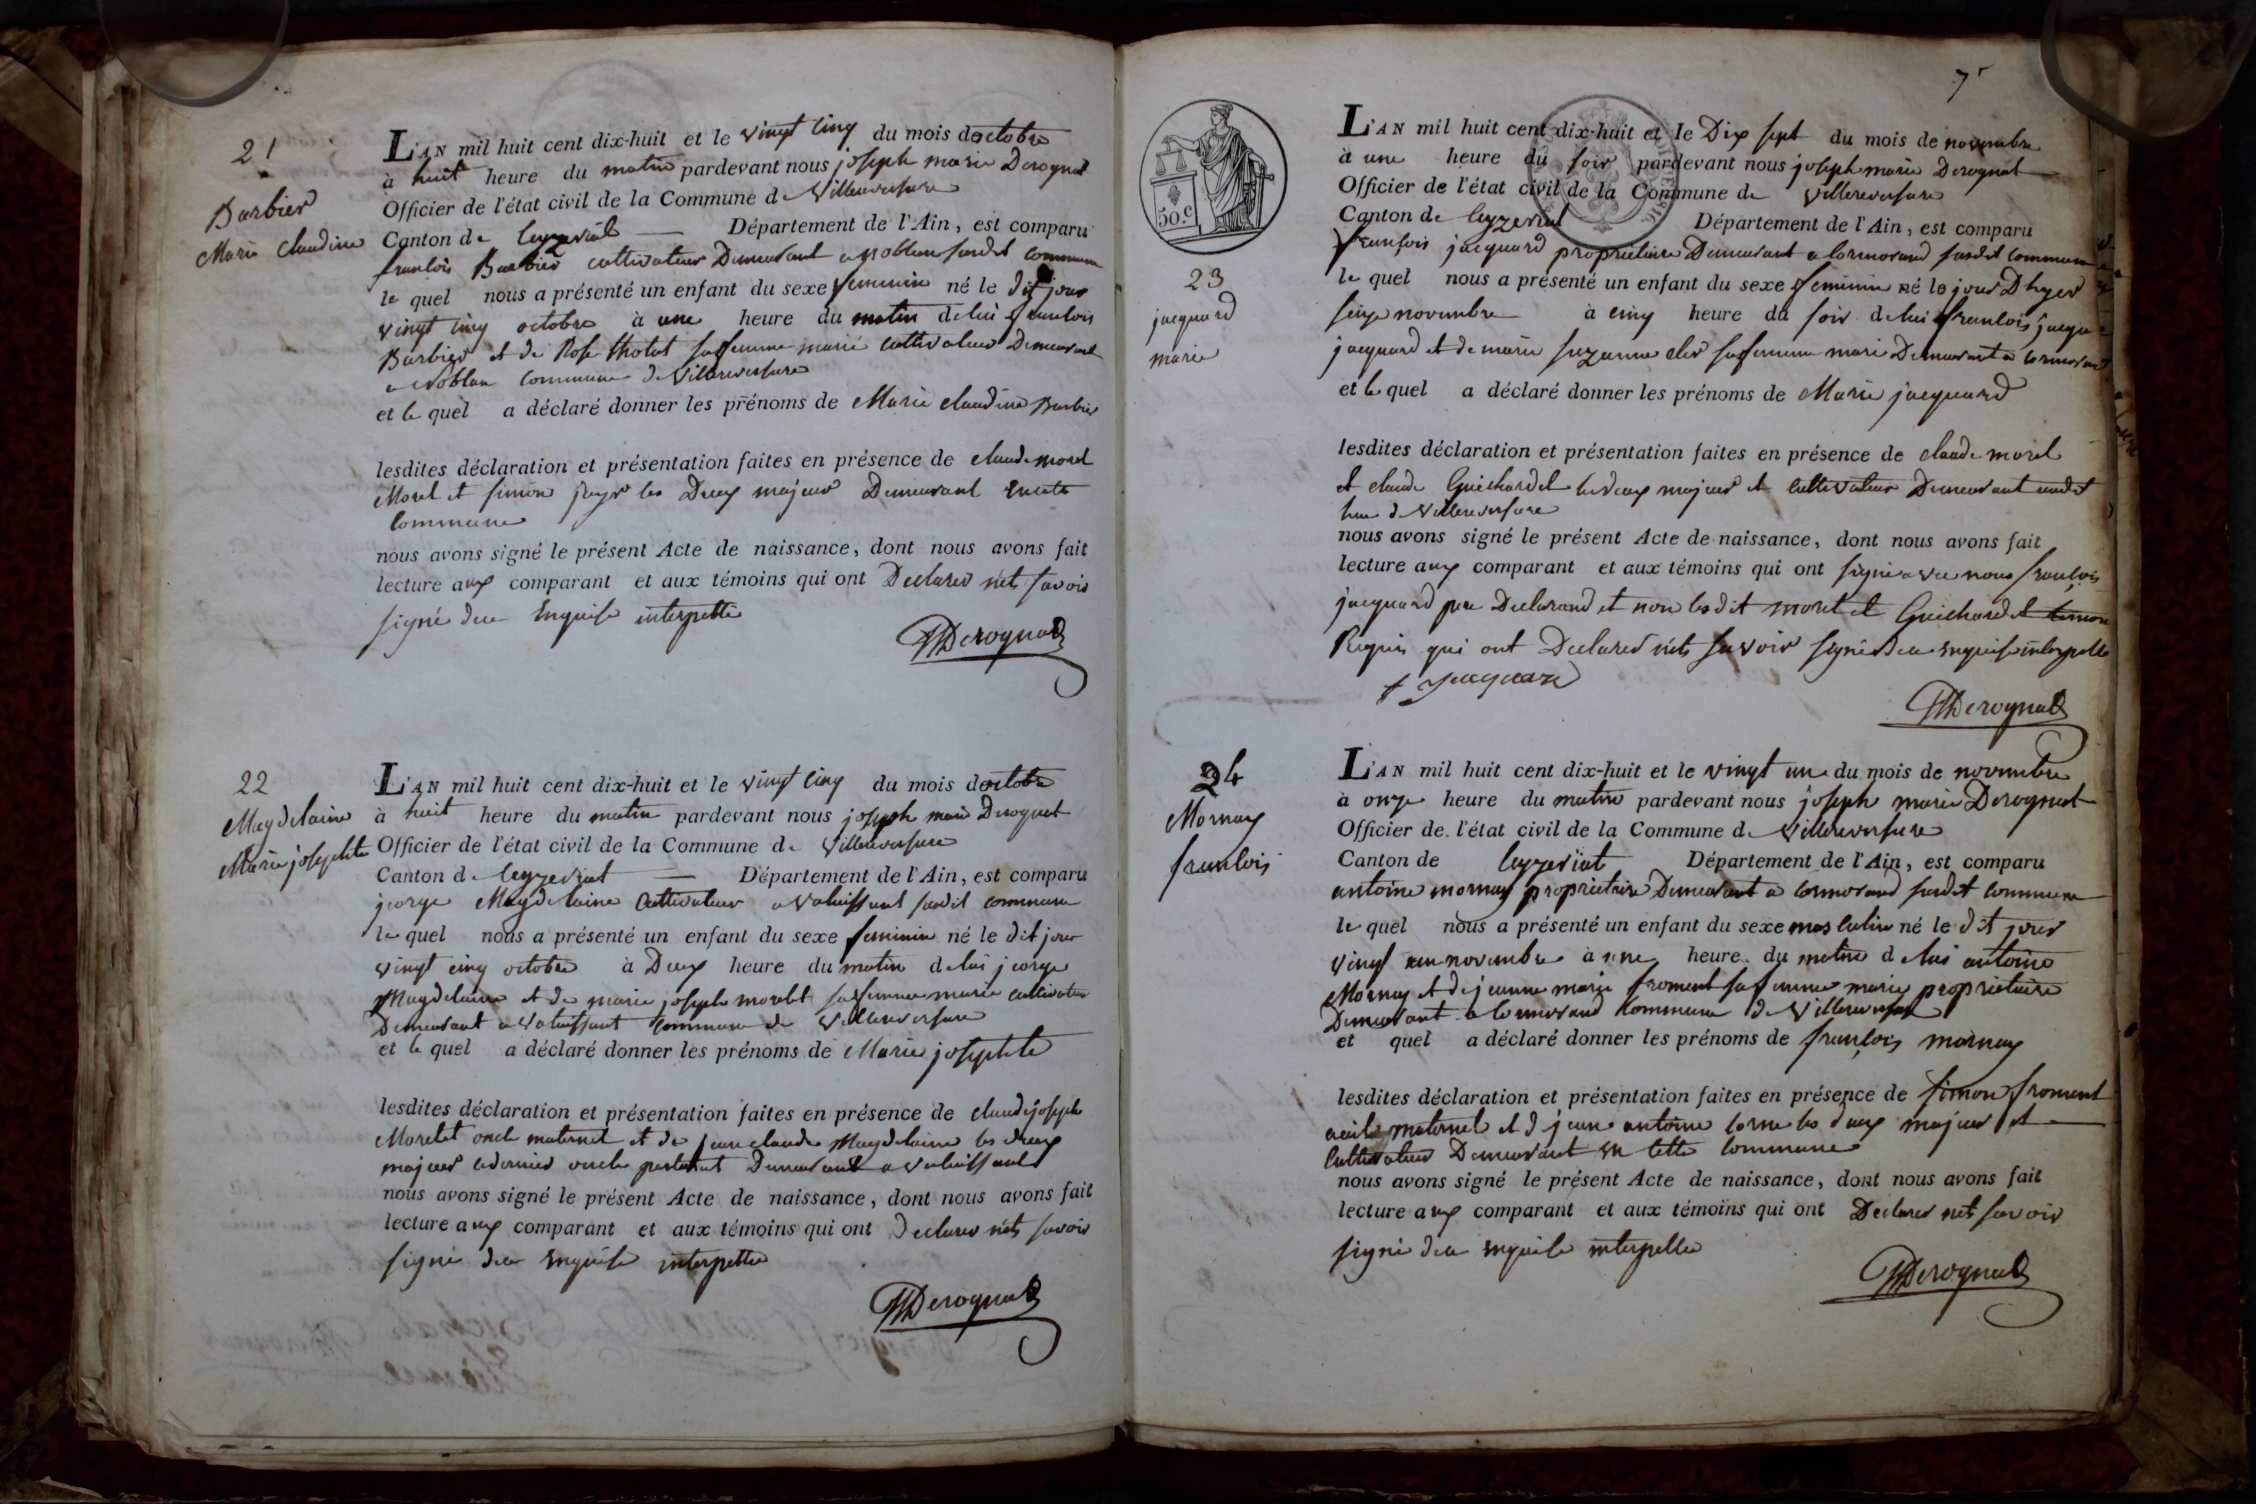 21
Barbier
Marie Claudine
L'AN mil huit cent dix-huit et le vingt cinq du mois doctobre
à huit heure du matin pardevant nous joseph marie Derognat
Officier de l'état civil de la Commune de Villereversure
Canton de Ceyzeriat Département de l'Ain, est comparu
francois Barbier cultivateur Demeurant a noblan susdit commune
le quel nous a présenté un enfant du sexe feminin né le dit jour
vingt cinq octobre à une heure du matin de lui francois
Barbier et de Rose thotot sa femme marié cultivateur Demeurant
a Noblan commune de Villereversure
et le quel a déclaré donner les prénoms de Marie claudine Barbier
lesdites déclaration et présentation faites en présence de claude morel
Morel et simon les Deux majeur Demeurant
commune
nous avons signé le présent Acte de naissance, dont nous avons fait
lecture aux comparant et aux témoins qui ont Declarer savoir
signé de ce Enquise interpelle
Derognat
22
Magdelaine
Marie josephte
L'AN mil huit cent dix-huit et le vingt cinq du mois doctobre
à huit heure du matin pardevant nous joseph marie Derognat
Officier de l'état civil de la Commune de Villereversure
Canton de Ceyzeriat Département de l'Ain, est comparu
jeorge Magdelaine Cultivateur a valuissant susdit commune
le quel nous a présenté un enfant du sexe feminin né le dit jour
vingt cinq octobre à Deux heure du matin de lui jeorge
Magdelaine et de marie joseph morelet sa femme marié cultivateur
Demeurant a valuissant commune de Villereversure
et le quel a déclaré donner les prénoms de Marie josephte
lesdites déclaration et présentation faites en présence de claude joseph
Morelet oncle maternel et de jean claude Magdelaine les deux
majeur oncle Demeurant a valuissant
nous avons signé le présent Acte de naissance, dont nous avons fait
lecture aux comparant et aux témoins qui ont declarer savoir
signé de ce enquise interpelle
Derognat
7
50. C
23
jacquard
marie
L'AN mil huit cent dix-huit et le Dix sept du mois de novembre
à une heure du soir pardevant nous joseph marie Derognat
Officier de l'état civil de la Commune de Villereversure
Canton de Ceyzeriat Département de l'Ain, est comparu
françois jacquard propriétaire Demeurant a Cormorand susdit commune
le quel nous a présenté un enfant du sexe feminin né le jour Dhyer
seize novembre à cinq heure du soir de lui francois jacqu
jacquard et de marie suzanne sa femme marié Demeurant a Cormorand
et le quel a déclaré donner les prénoms de Marie jacquard
lesdites déclaration et présentation faites en présence de claude morel
et claude Guichardet les deux majeur et Cultivateur Demeurant
lieu de Villereversure
nous avons signé le présent Acte de naissance, dont nous avons fait
lecture aux comparant et aux témoins qui ont signé avec nous françois
jacquard pere Declarand et non lesdit morel et Guichardet
Requis qui ont Declarer savoir signé de ce enquise interpelle
f jacquard
Derognat
24
Mornay
francois
L'AN mil huit cent dix-huit et le vingt un du mois de novembre
à onze heure du matin pardevant nous joseph marie Derognat
Officier de l'état civil de la Commune de Villereversure
Canton de Ceyzeriat Département de l'Ain, est comparu
antoine mornay propriétaire Demeurant a Cormorand susdit commune
le quel nous a présenté un enfant du sexe masculin né le dit jour
vingt un novembre à une heure du matin de lui antoine
Mornay et de jeanne marie froment sa femme marié propriétaire
Demeurant a Cormorand commune de Villereversure
et quel a déclaré donner les prénoms de françois mornay
lesdites déclaration et présentation faites en présence de simon froment
maternel et de jean antoine les deux majeur et
Cultivateur Demeurant en cette commune
nous avons signé le présent Acte de naissance, dont nous avons fait
lecture aux comparant et aux témoins qui ont Declarer savoir
signé de ce enquise interpelle
Derognat